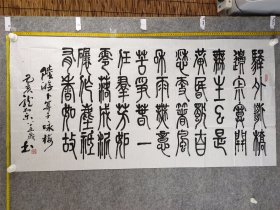 驛外斷橋
邊寂寞開
無主已是
黃昏獨自
愁更著風
和雨無意
苦爭春一
任羣芳妒
零落成泥
碾作塵祇
有香如故
陸游卜算子詠梅
己亥
書